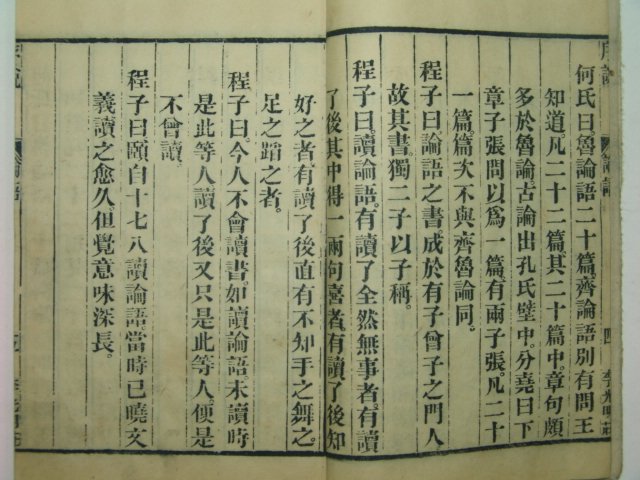 序說
論語
四
李光明莊
何氏曰魯論語二十篇齊論語別有問王
知道凡二十二篇其二十篇中章句頗
多於魯論古論出孔氏壁中分堯曰下
章子張問以爲一篇有兩子張凡二十
一篇篇次不與齊魯論同
程子曰論語之書成於有子曾子之門人
故其書獨二子以子稱
程子曰讀論語有讀了全然無事者有讀
了後其中得一兩句喜者有讀了後知
好之者有讀了後直有不知手之舞之
足之蹈之者
程子曰今人不會讀書如讀論語未讀時
是此等人讀了後又只是此等人便是
不會讀
程子曰頤自十七八讀論語當時已曉文
義讀之愈久但覺意味深長